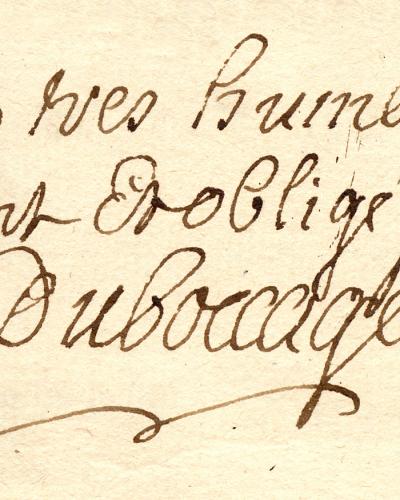 tres hum
nt Et obligé
Duboccage